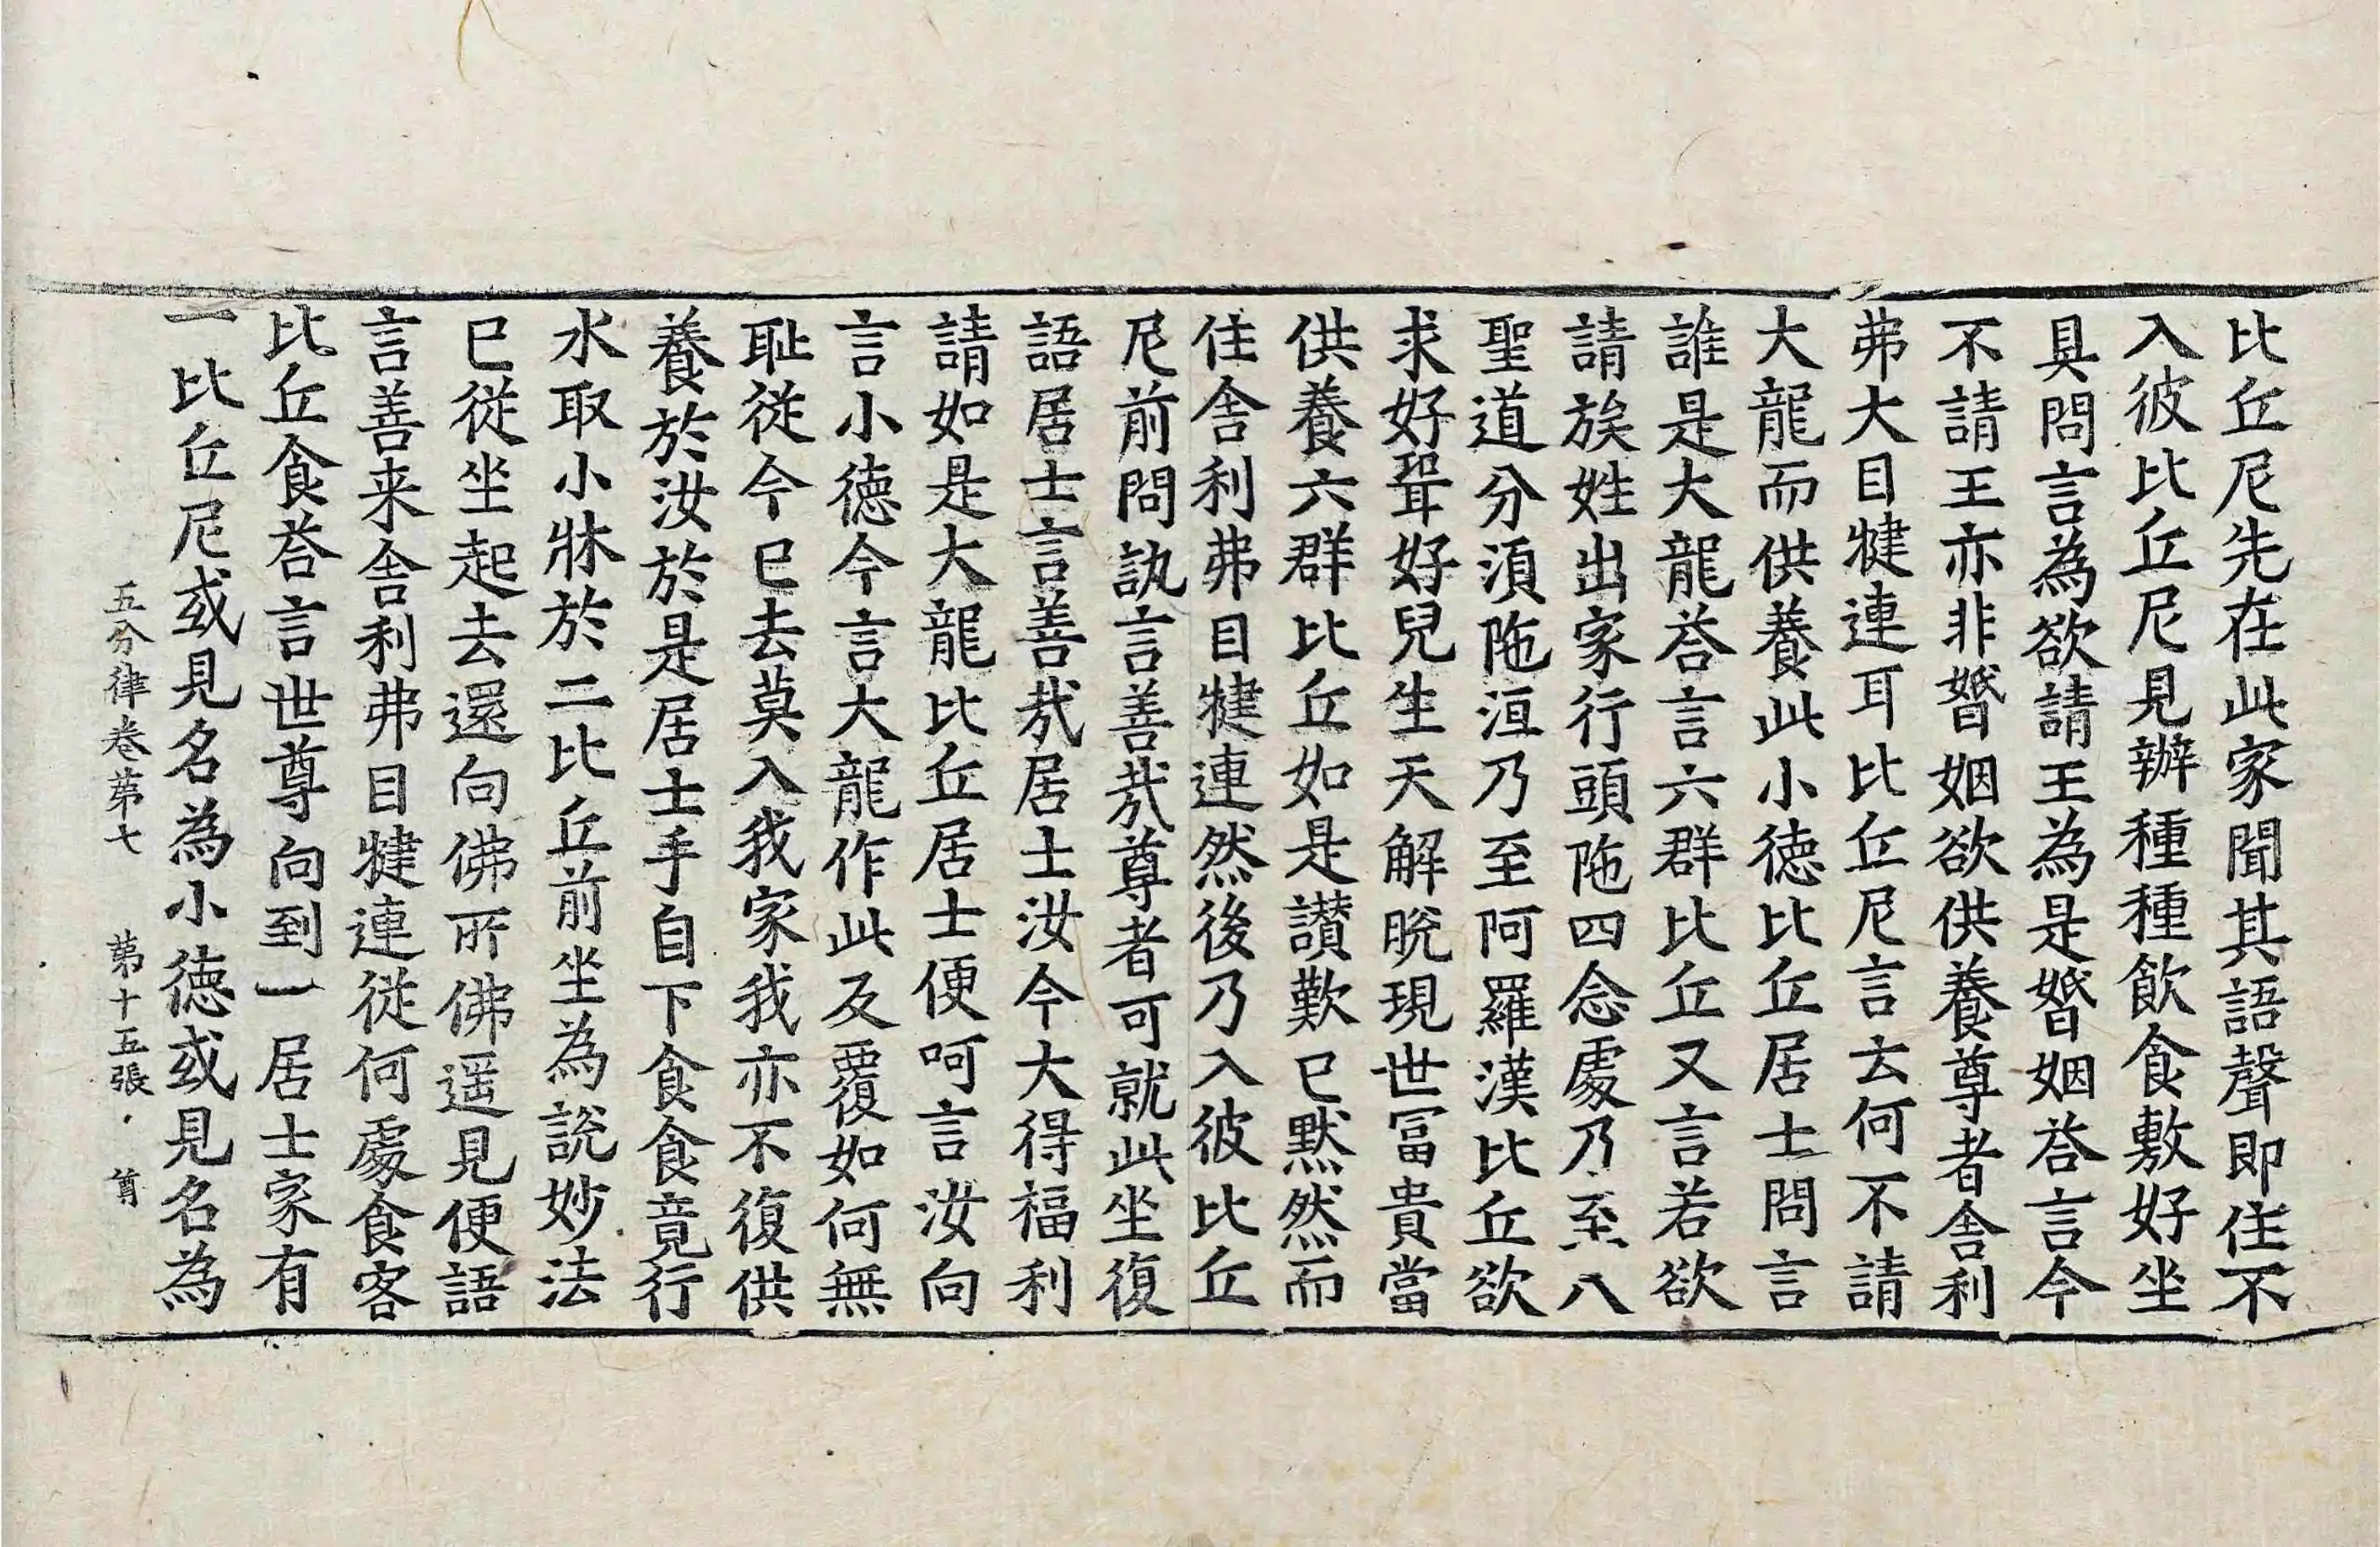 比丘尼先在此家聞其語聲即住不
入彼比丘尼見辦種種飲食敷好坐
具問言為欲請王為是婚姻荅言今
不請王亦非婚姻欲供養尊者舍利
弗大目犍連耳比丘尼言云何不請
大龍而供養此小德比丘居士問言
誰是大龍荅言六群比丘又言若欲
請族姓出家行頭陁四念處乃至八
聖道分湏陁洹乃至阿羅漢比丘欲
求好聟好兒生天解脫現世冨貴當
供養六群比丘如是讃歎已默然而
住舍利弗目犍連然後乃入彼比丘
尼前問訊言善㢤尊者可就此坐復
語居士言善㢤居士汝今大得福利
請如是大龍比丘居士便呵言汝向
言小德今言大龍作此反覆如何無
耻從今已去莫入我家我亦不復供
養於汝於是居士手自下食食竟行
水取小牀於二比丘前坐為說妙法
已從坐起去還向佛所佛遥見便語
言善来舍利弗目犍連從何處食客
比丘食荅言世尊向到一居士家有
一比丘尼或見名為小德或見名為
五分律卷第七 第十五張